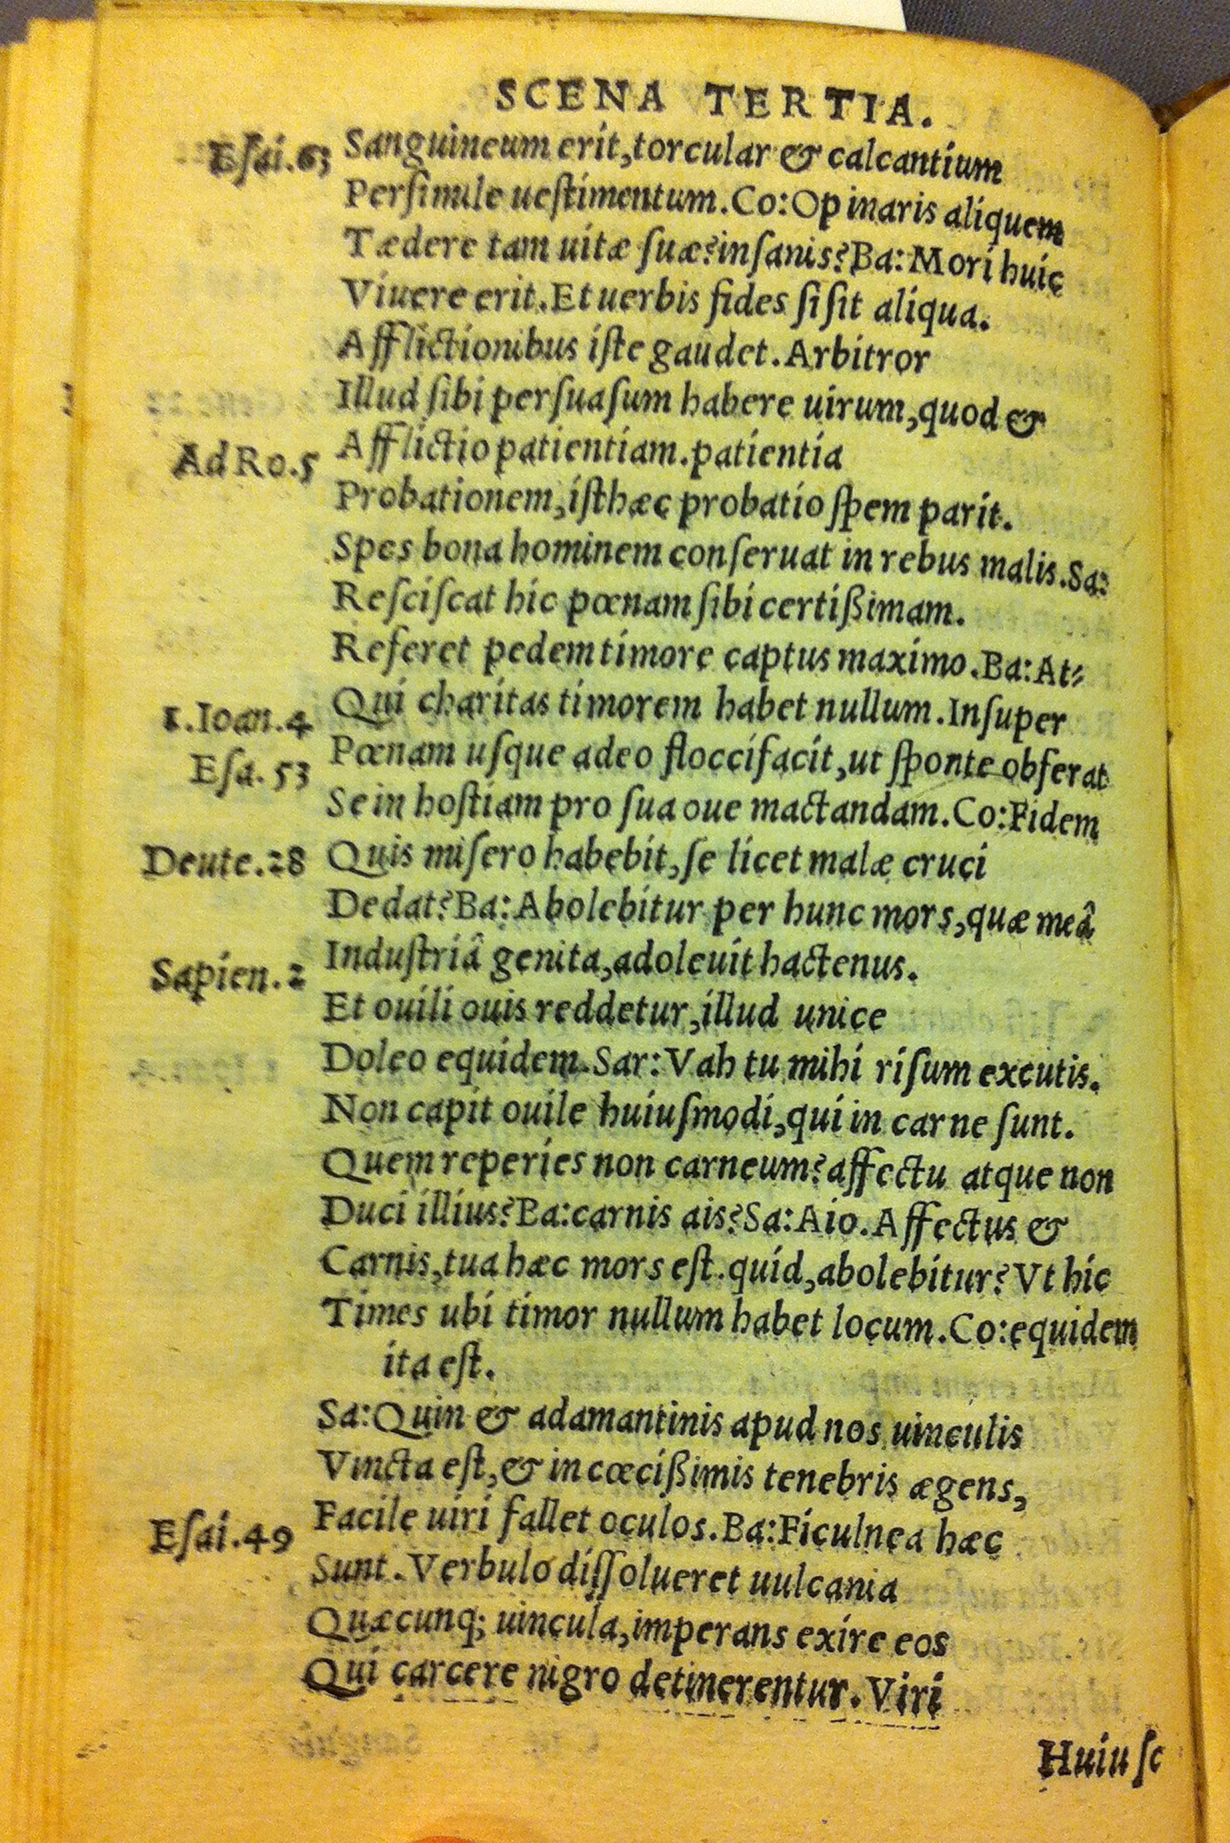 SCENA TERTIA.
Eſai.63 Sanguineum erit,torcular & calcantium
Perſimile ueſtimentum.Co:Opinaris aliquem
Tædere tam uitæ ſuæ?inſanis?Ba:Mori huic
Viuere erit.Et uerbis fides ſi ſit aliqua.
Afflictionibus iſte gaudet.Arbitror
Illud ſibi perſuaſum habere uirum,quod &
Ad Ro.5 Afflictio patientiam.patientia
Probationem,iſthæc probatio ſpem parit.
Spes bona hominem conſeruat in rebus malis.Sa:
Reſciſcat hic pœnam ſibi certißimam.
Referet pedem timore captus maximo.Ba:At⸗
1.Ioan.4 Qui charitas timorem habet nullum.Inſuper
Eſa.53 Pœnam uſque adeo floccifacit,ut ſponte obferat
Se in hoſtiam pro ſua oue mactandam.Co:Fidem
Deute.28 Quis miſero habebit,ſe licet malæ cruci
Dedat?Ba:Abolebitur per hunc mors,quæ meâ
Sapien.2 Induſtriâ genita,adoleuit hactenus.
Et ouili ouis reddetur,illud unice
Doleo equidem.Sar:Vah tu mihi riſum excutis.
Non capit ouile huiuſmodi,qui in carne ſunt.
Quem reperies non carneum?affectu atque non
Duci illius?Ba:carnis ais?Sa:Aio.Affectus &
Carnis,tua hæc mors eſt.quid,abolebitur?Vt hic
Times ubi timor nullum habet locum.Co:equidem
ita eſt.
Sa:Quin & adamantinis apud nos uinculis
Vincta eſt,& in cœcißimis tenebris ægens,
Eſai.49 Facile uiri fallet oculos.Ba:Ficulnea hæc
Sunt.Verbulo diſſolueret uulcania
Quæcunq; uincula,imperans exire eos
Qui carcere nigro detinerentur.Viri
Huiuſc